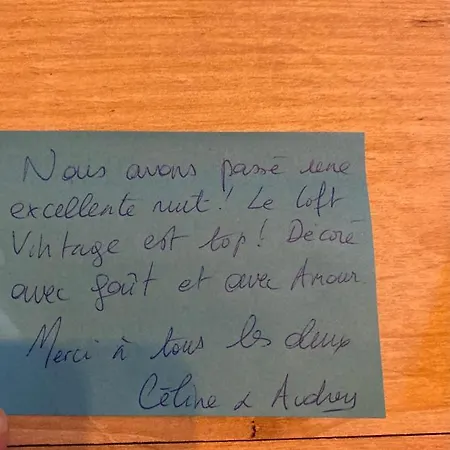 Nous avons passé une
excellente nuit! Le Loft
Vintage est top! Décoré
avec goût et avec Amour.
Merci à tous les deux
Céline & Audrey